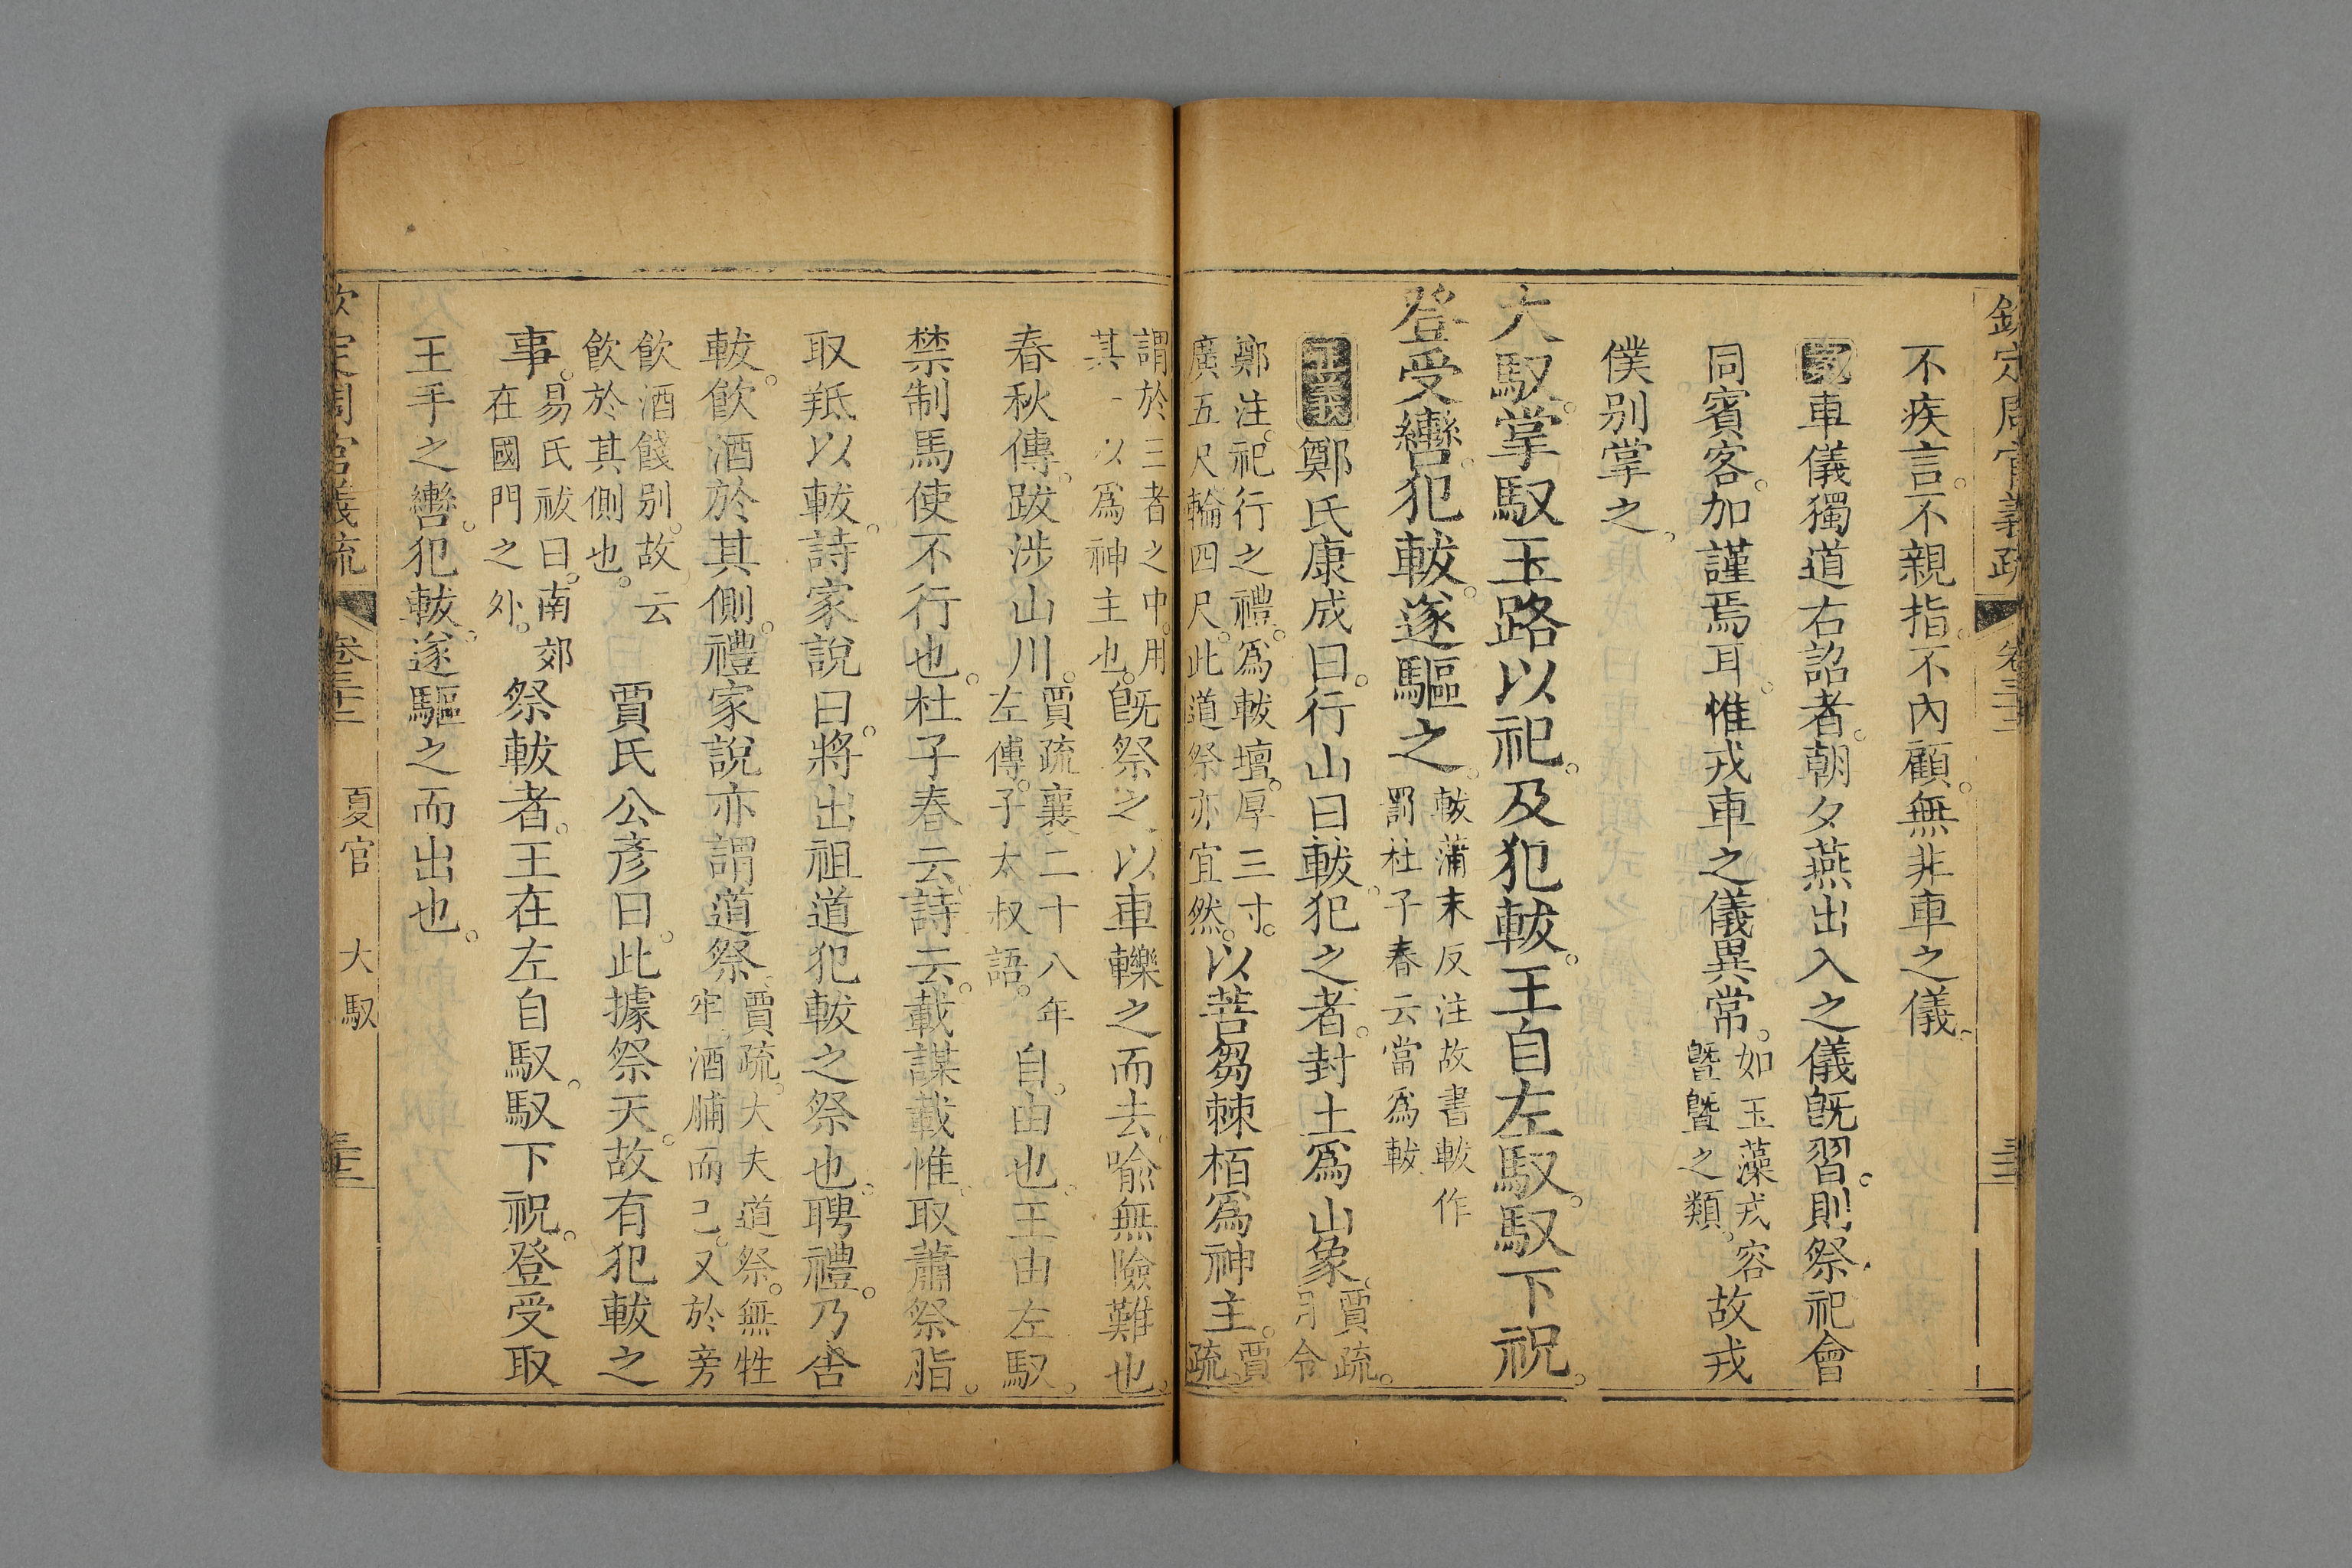 欽定周官義疏 卷三十二 三十二
不疾言。不親指。不內顧。無非車之儀。
車儀獨道右詔者。朝夕燕出入之儀旣習。則祭祀會
同賓客。加謹焉耳。惟戎車之儀異常。如玉藻戎容曁曁之類。故戎
僕別掌之。
大馭。掌馭玉路以祀。及犯軷。王自左馭。馭下祝。
登受轡。犯軷。遂驅之。軷蒲末反注故書軷作罰杜子春云當為軷
正義鄭氏康成曰。行山曰軷。犯之者。封土爲山象。賈疏。月令
鄭注。祀行之禮。為軷壇。厚三寸。廣五尺輪四尺。此道祭亦宜然。以菩芻棘栢爲神主。賈疏。
謂於三者之中。用其一以爲神主也。旣祭之以車轢之而去。喻無險難也。
春秋傳。跋涉山川。賈疏襄二十八年左傳。子太叔語。自。由也。王由左馭。
禁制馬使不行也。杜子春云。詩云。載謀載惟。取蕭祭脂。
取羝以軷。詩家說曰。將出祖道犯軷之祭也。聘禮。乃舍
軷。飮酒於其側。禮家說亦謂道祭。賈疏。大夫道祭。無牲牢。酒脯而已。又於旁
飮酒餞别。故云飮於其側也。賈氏公彥曰。此據祭天。故有犯軷之
事。易氏祓曰。南郊在國門之外。祭軷者。王在左自馭。馭下祝。登受取
王手之轡。犯軷。遂驅之而出也。
欽定周官義疏 卷三十二 夏官 大馭 三十三